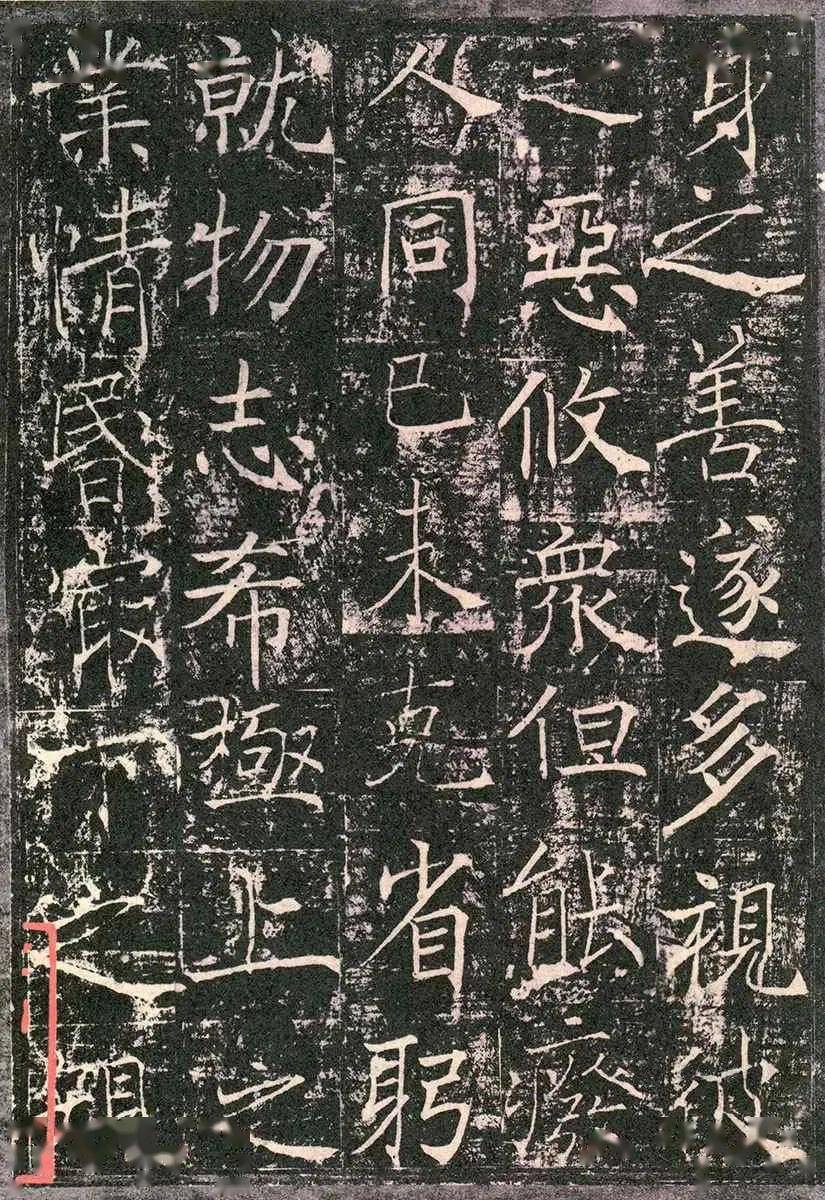 身之善遂多視彼
之惡攸衆但能癈
人同已未克省躬
就物志希極上之
業情昬冣下之